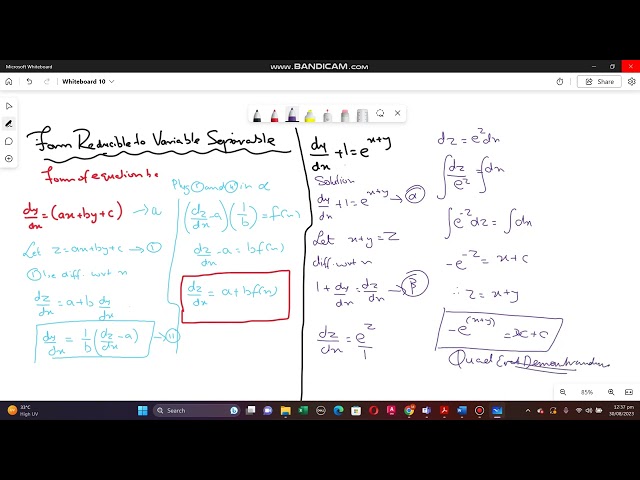 Microsoft Whiteboard
WWW.BANDICAM.COM
Whiteboard 10
Share
Form Reducible to Variable Separable
Form of equation be
dy/dx = (ax+by+c) → a
Let z = ax+by+c → ①
① be diff. wrt x
dz/dx = a+b dy/dx
dy/dx = 1/b (dz/dx - a) → ⑪
Plug ① and ⑪ in α
(dz/dx - a)(1/b) = f(x)
dz/dx - a = bf(x)
dz/dx = a + bf(x)
dy/dx + 1 = e^(x+y)
Solution
dy/dx + 1 = e^(x+y) → α
Let x+y = Z
diff. wrt x
1 + dy/dx = dz/dx → β
dz/dx = e^z/1
dz = e^z dx
∫ dz/e^z = ∫ dx
∫ e^-z dz = ∫ dx
-e^-z = x+c
∴ z = x+y
-e^-(x+y) = x+c
Quad Erat Demonstrandum
85%
33°C
High UV
Search
12:37 pm
30/08/2023